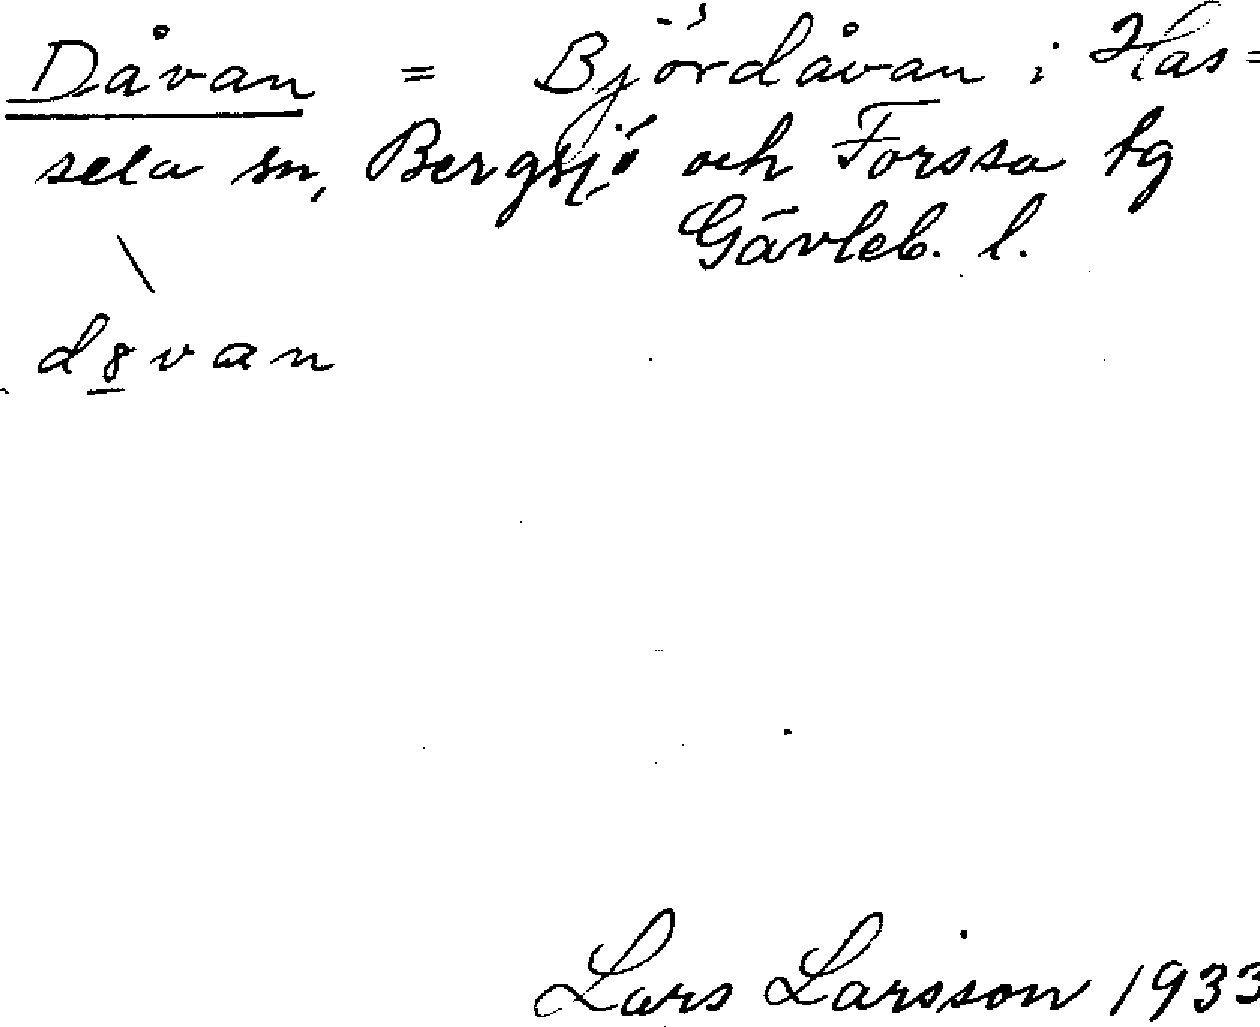 Dåvan = Björdåvan i Has=
sela sn, Bergsjö och Forssa tg
Gävleb. l.
\
d8van
Lars Larsson 1933